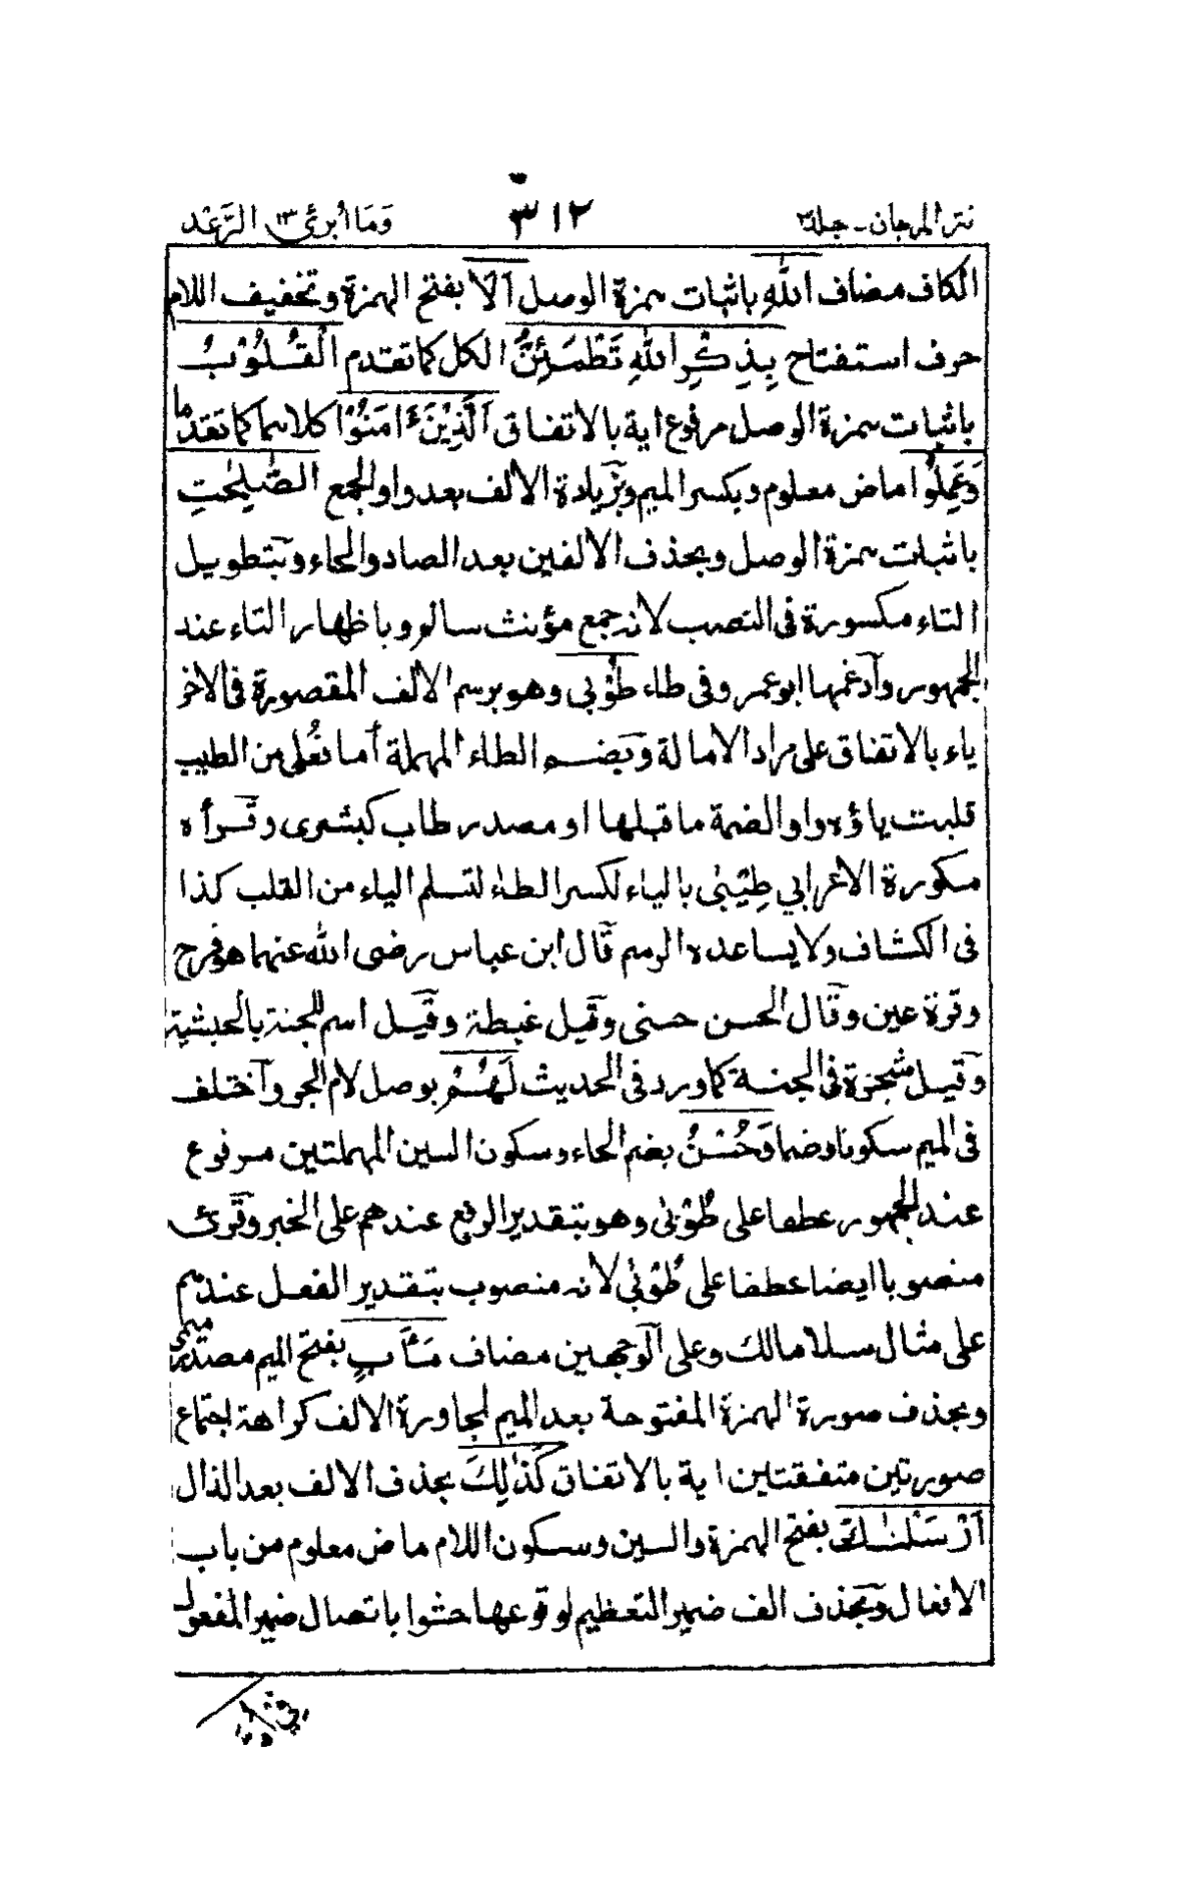 نثر المرجان ـ جلد ٣ ٣١٢ وَمَا أُبَرِّئُ ١٣ الرَّعْد
الكاف مضاف اللّٰهِ باثبات همزة الوصل اَلَا بفتح الهمزة وتخفيف اللام
حرف استفتاح بِذِكْرِ اللّٰهِ تَطْمَئِنُّ الكل كما تقدم الْقُلُوْبُ
باثبات همزة الوصل مرفوع اية بالاتفاق اَلَّذِيْنَ ءَامَنُوْا كلاهما كما تقدما
وَعَمِلُوا ماض معلوم وبكسر الميم وبزيادة الالف بعد واو الجمع الصّٰلِحٰتِ
باثبات همزة الوصل وبحذف الالفين بعد الصاد والحاء وبتطويل
التاء مكسورة فى النصب لانه جمع مؤنث سالم وباظهار التاء عند
الجمهور وادغمها ابو عمرو فى طاء طُوْبٰى وهو برسم الالف المقصورة فى الاخر
ياء بالاتفاق على مراد الامالة وبضم الطاء المهملة أما فُعْلى من الطيب
قلبت ياؤه واوا لضمة ما قبلها او مصدر طاب كبشرى وقرأه
مكورة الاعرابي طِيْبٰى بالياء لكسر الطاء لتسلم الياء من القلب كذا
فى الكشاف ولا يساعده الرسم قال ابن عباس رضى الله عنهما هو فرح
وقرة عين وقال الحسن حسنى وقيل غبطة وقيل اسم للجنة بالحبشية
وقيل شجرة فى الجنة كما ورد فى الحديث لَهُمْ بوصل لام الجر واختلف
فى الميم سكونا وضما وَحُسْنُ بضم الحاء وسكون السين المهملتين مرفوع
عند الجمهور عطفا على طُوْبٰى وهو بتقدير الرفع عندهم على الخبر وقرئ
منصوبا ايضا عطفا على طُوْبٰى لانه منصوب بتقدير الفعل عندهم
على مثال سلاما لك وعلى الوجهين مضاف مَـَٔابٍ بفتح الميم مصدر ميمى
وبحذف صورة الهمزة المفتوحة بعد الميم لمجاورة الالف كراهة اجتماع
صورتين متفقتين اية بالاتفاق كَذٰلِكَ بحذف الالف بعد الذال
اَرْسَلْنٰكَ بفتح الهمزة والسين وسكون اللام ماض معلوم من باب
الافعال وبحذف الف ضمير التعظيم لوقوعها حشوا باتصال ضمير المفعول